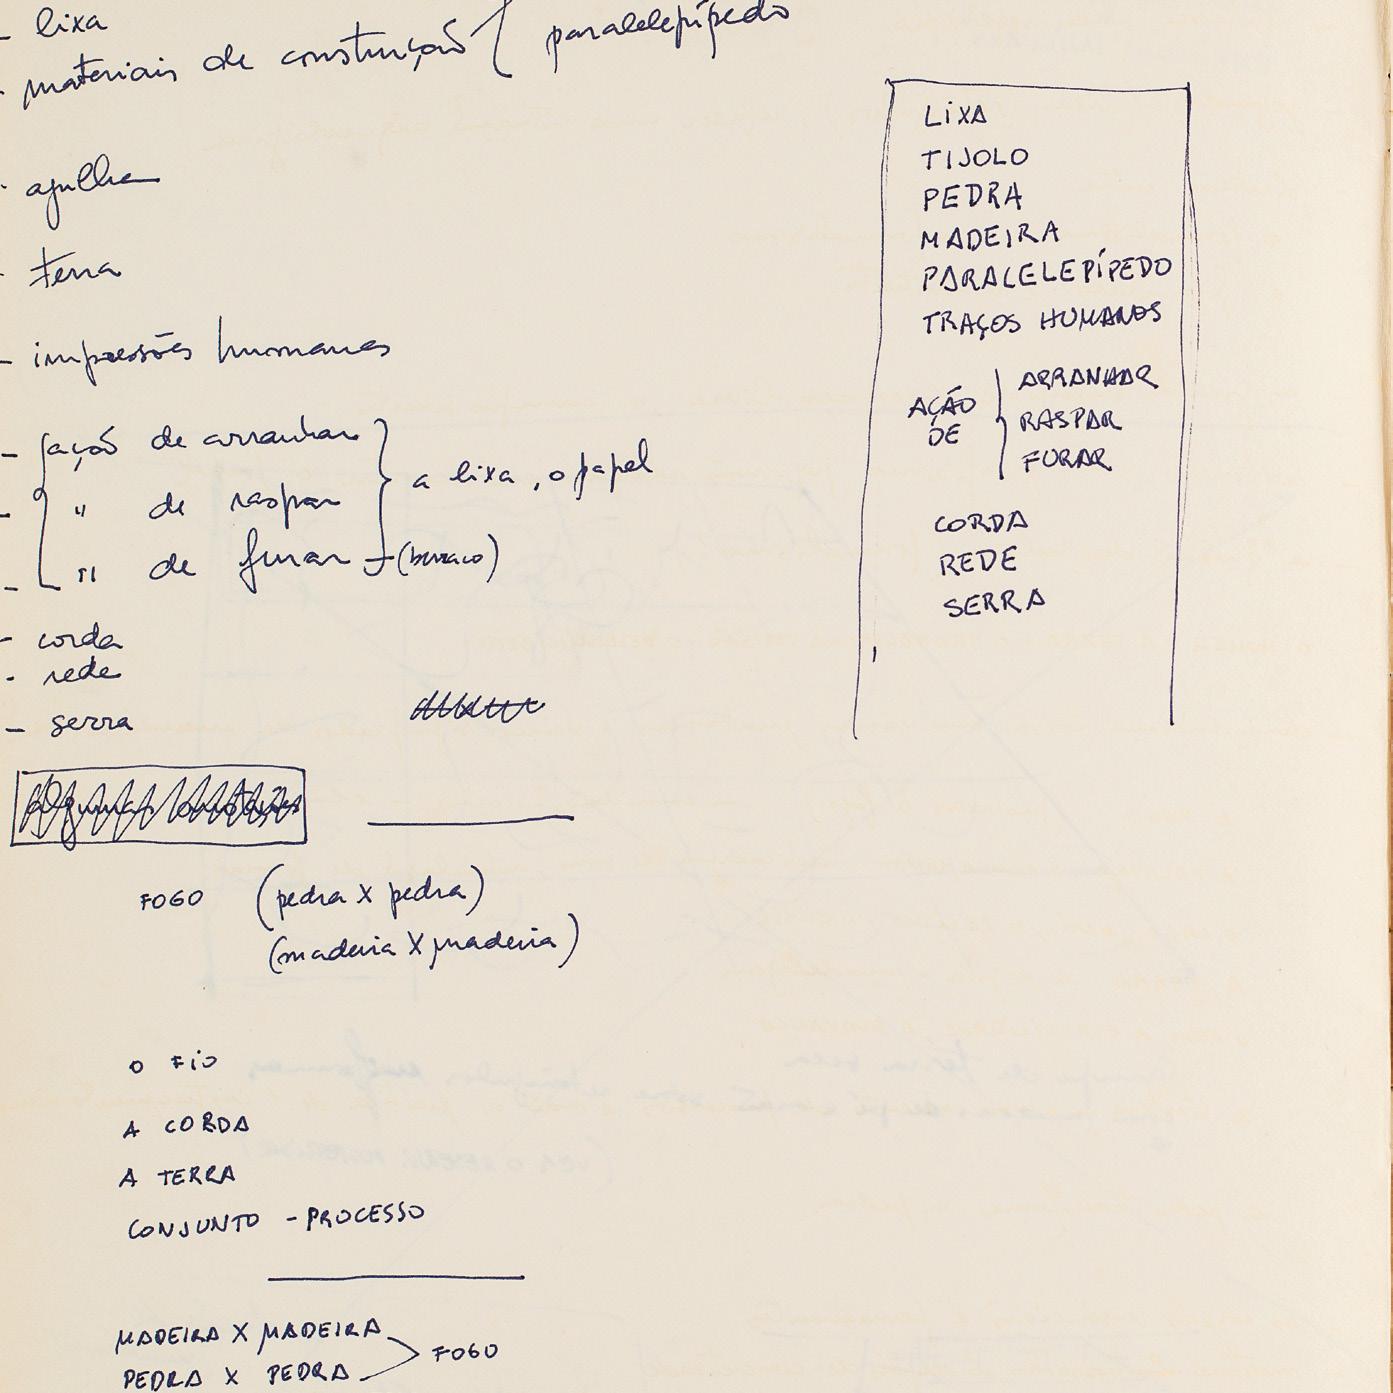 - lixa
- materiais de construção { paralelepípedo
- agulha
- terra
- impressões humanas
- ação de arranhar
- " de raspar } a lixa, o papel
- " de furar - (buraco)
- corda
- rede
- serra
FOGO (pedra X pedra)
(madeira X madeira)
O FIO
A CORDA
A TERRA
CONJUNTO - PROCESSO
MADEIRA X MADEIRA
PEDRA X PEDRA
FOGO
LIXA
TIJOLO
PEDRA
MADEIRA
PARALELEPÍPEDO
TRAÇOS HUMANOS
AÇÃO
DE
ARRANHAR
RASPAR
FURAR
CORDA
REDE
SERRA